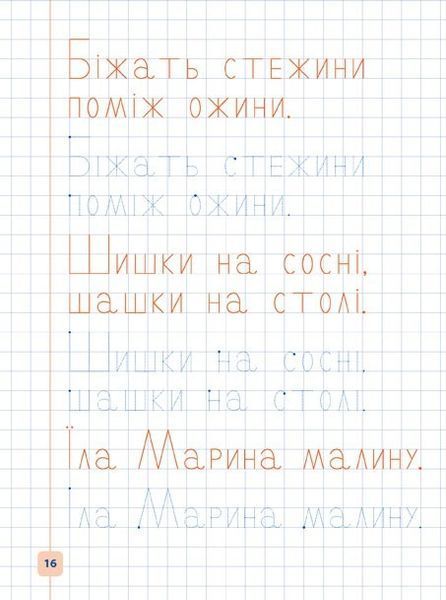 Біжать стежини
поміж ожини.
Біжать стежини
поміж ожини.
Шишки на сосні,
шашки на столі.
Шишки на сосні,
шашки на столі.
Їла Марина малину.
Їла Марина малину.
16